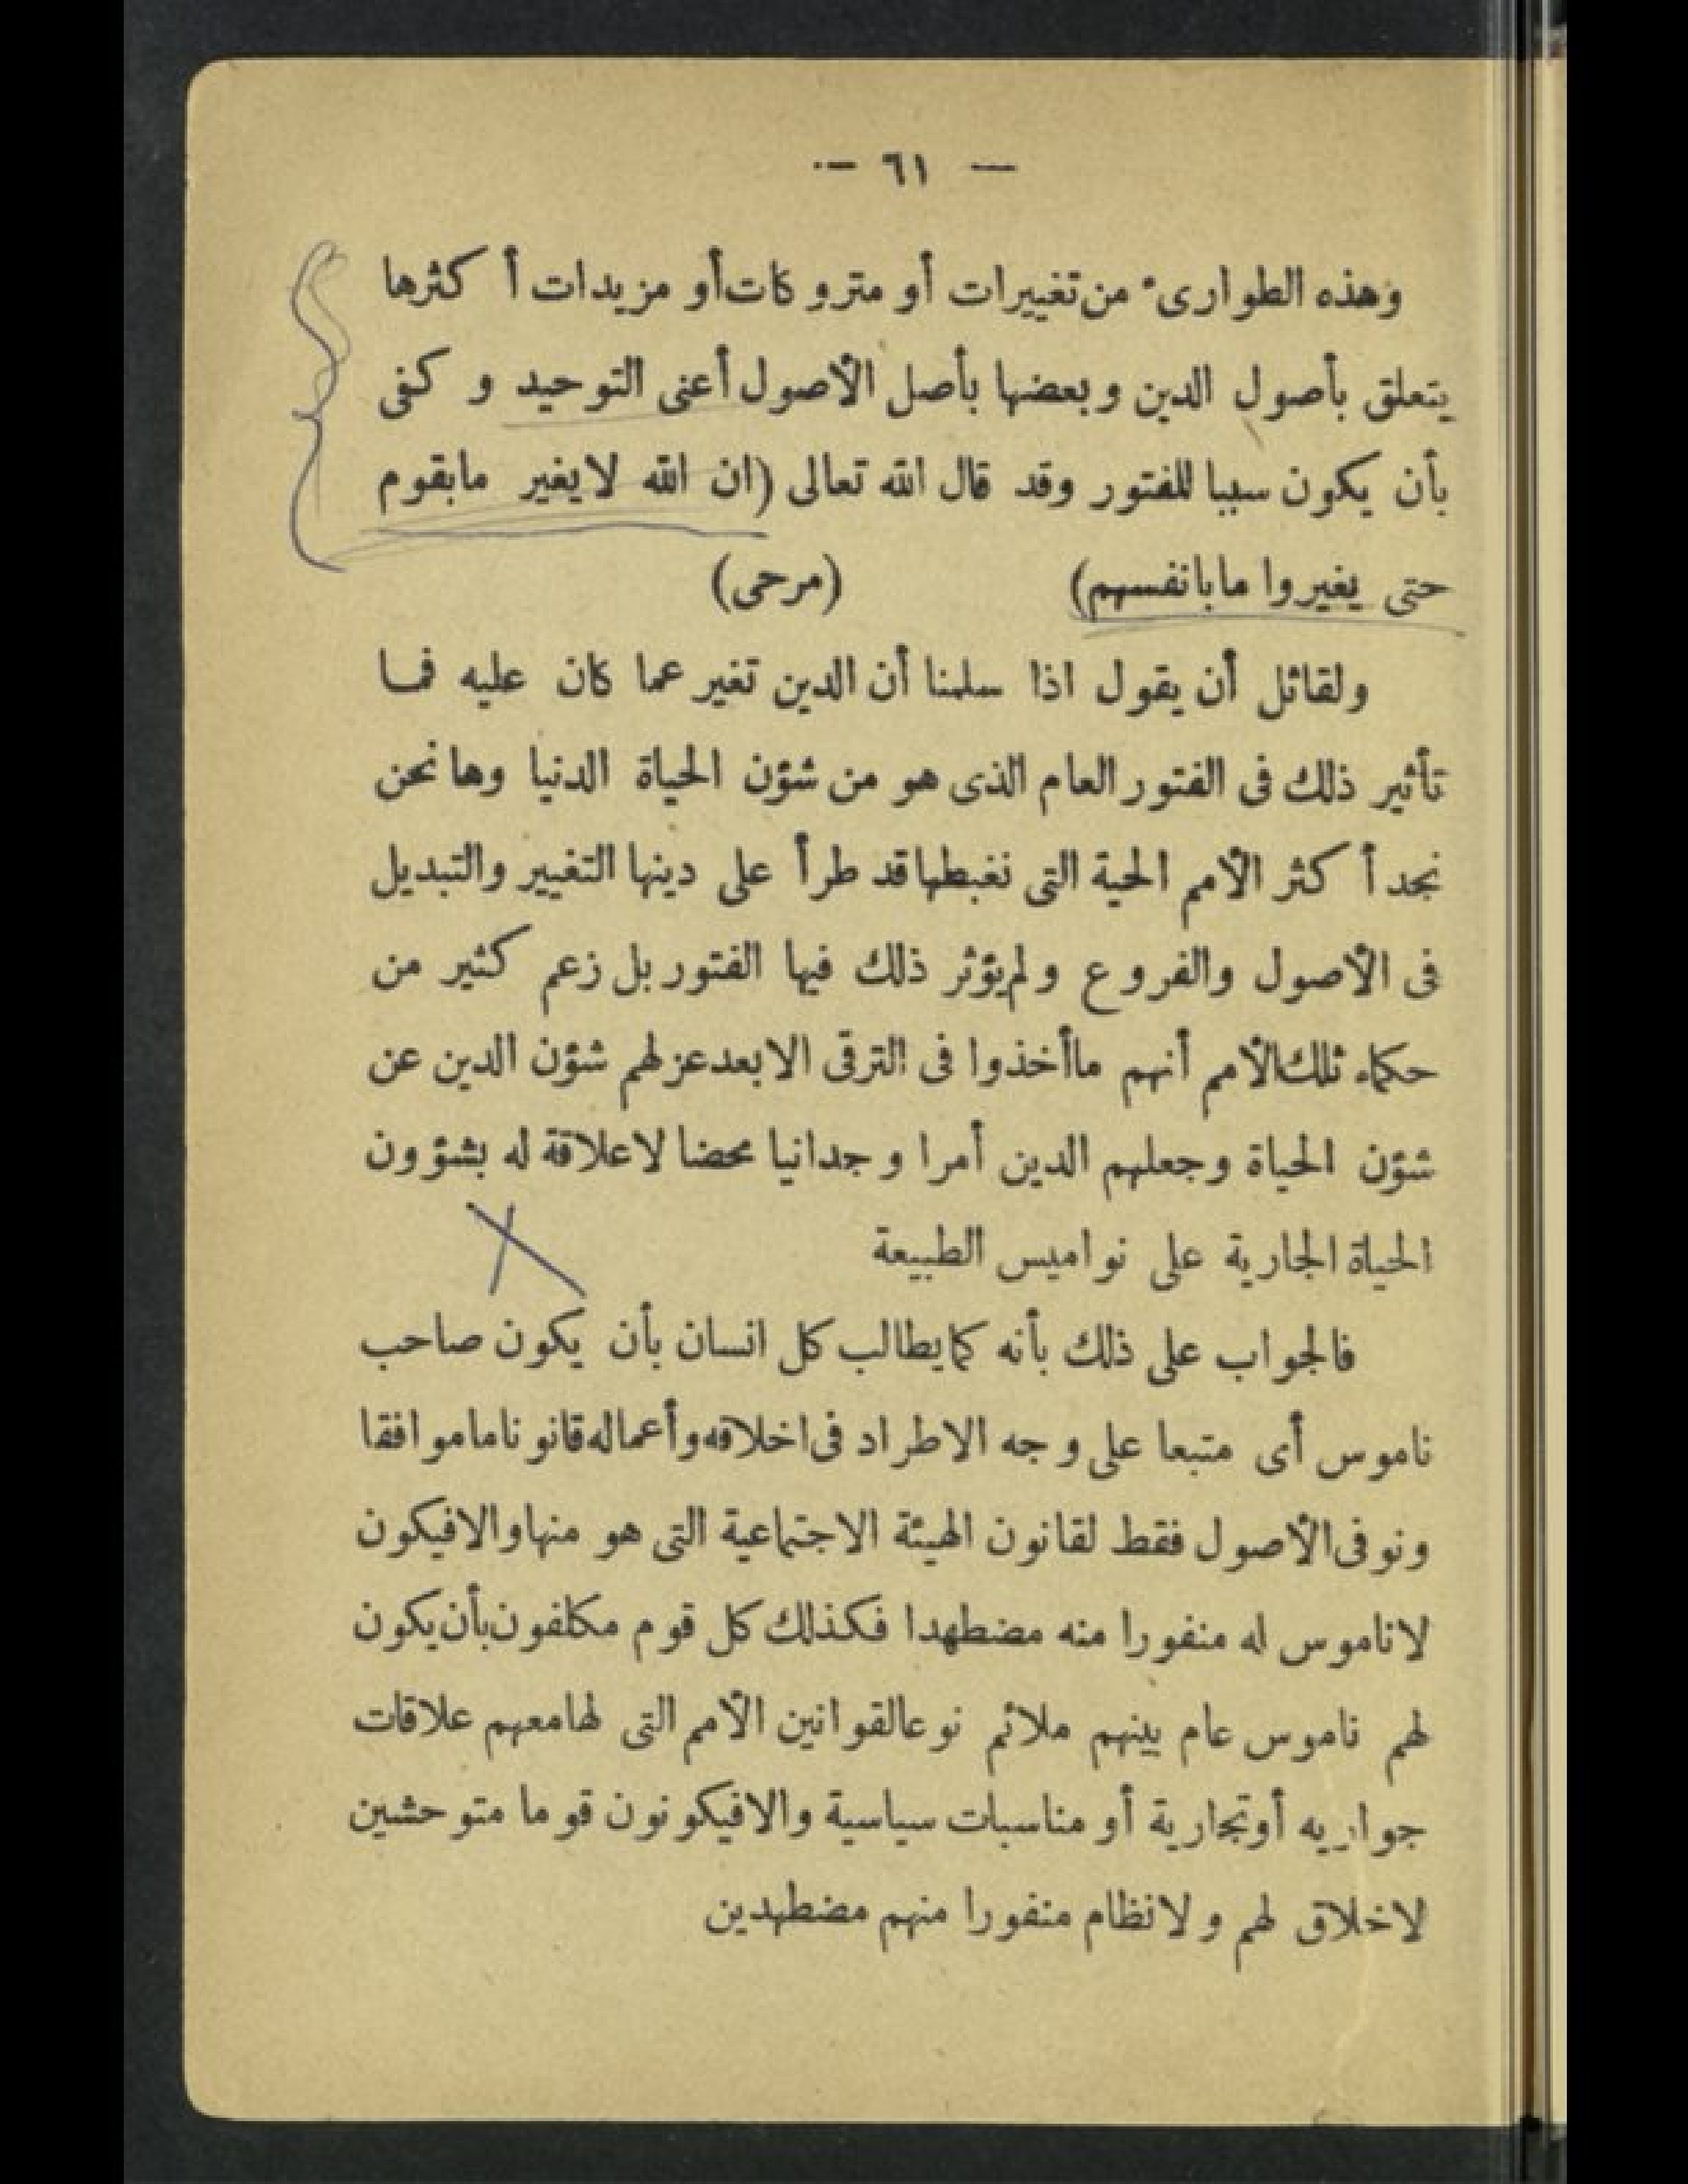 — ٦١ —
وهذه الطوارىء من تغييرات أو متروكات أو مزيدات أكثرها
يتعلق بأصول الدين وبعضها بأصل الأصول أعنى التوحيد وكفى
بأن يكون سببا للفتور وقد قال الله تعالى (ان الله لا يغير ما بقوم
حتى يغيروا ما بانفسهم) (مرحى)
ولقائل أن يقول اذا سلمنا أن الدين تغير عما كان عليه فما
تأثير ذلك فى الفتور العام الذى هو من شؤن الحياة الدنيا وها نحن
نجد أكثر الأمم الحية التى نغبطها قد طرأ على دينها التغيير والتبديل
فى الأصول والفروع ولم يؤثر ذلك فيها الفتور بل زعم كثير من
حكماء تلك الأمم أنهم ما أخذوا فى الترقى الا بعد عزلهم شؤن الدين عن
شؤن الحياة وجعلهم الدين أمرا وجدانيا محضا لا علاقة له بشؤون
الحياة الجارية على نواميس الطبيعة
فالجواب على ذلك بأنه كما يطالب كل انسان بأن يكون صاحب
ناموس أى متبعا على وجه الاطراد فى اخلاقه وأعماله قانونا ما موافقا
ونو فى الأصول فقط لقانون الهيئة الاجتماعية التى هو منها والا فيكون
لا ناموس له منفورا منه مضطهدا فكذلك كل قوم مكلفون بأن يكون
لهم ناموس عام بينهم ملائم نوعا لقوانين الأمم التى لها معهم علاقات
جواريه أو تجارية أو مناسبات سياسية والا فيكونون قوما متوحشين
لا خلاق لهم ولا نظام منفورا منهم مضطهدين